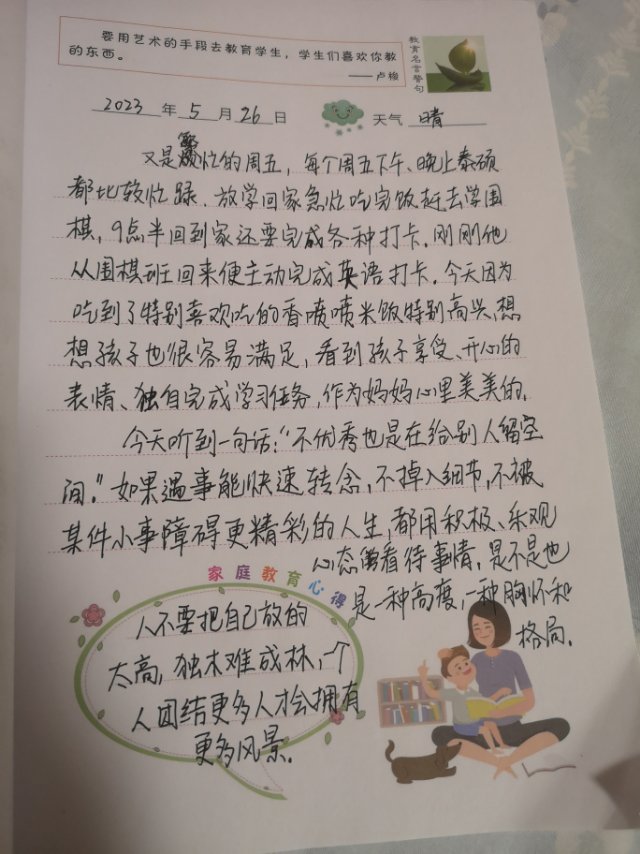 要用艺术的手段去教育学生，学生们喜欢你教
的东西。
——卢梭
教育名言警句
2023 年 5 月 26 日 天气 晴
又是繁忙的周五，每个周五下午、晚上泰硕
都比较忙碌．放学回家急忙吃完饭赶去学围
棋，9点半回到家还要完成各种打卡．刚刚他
从围棋班回来便主动完成英语打卡．今天因为
吃到了特别喜欢吃的香喷喷米饭特别高兴，想
想孩子也很容易满足，看到孩子享受、开心的
表情、独自完成学习任务，作为妈妈心里美美的．
今天听到一句话：“不优秀也是在给别人留空
间．”如果遇事能快速转念，不掉入细节，不被
某件小事障碍更精彩的人生，都用积极、乐观
心态看待事情，是不是也
是一种高度，一种胸怀和
格局．
家庭教育心得
人不要把自己放的
太高，独木难成林，一个
人团结更多人才会拥有
更多风景．